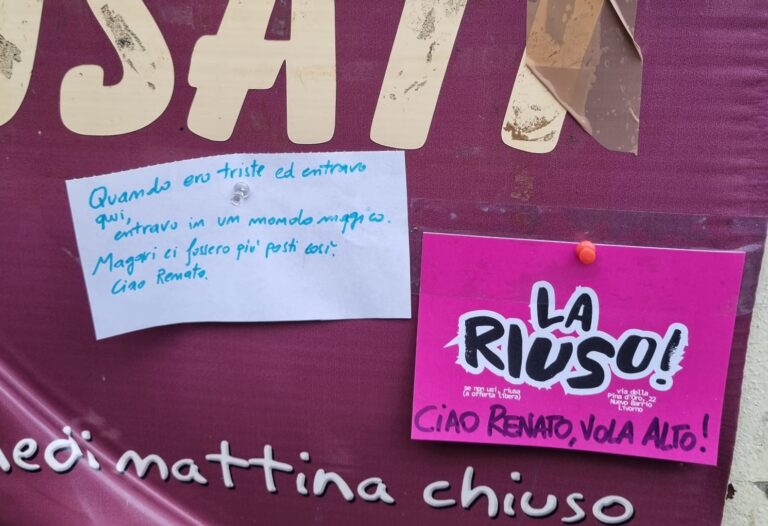 USATI
Quando ero triste ed entravo
qui,
entravo in un mondo magico.
Magari ci fossero più posti così.
Ciao Renato.
LA
RIUSO!
se non usi, riusa
(a offerta libera)
via della
Pina d'Oro, 22
Nuovo Barrio
Livorno
CIAO RENATO, VOLA ALTO!
nedì mattina chiuso